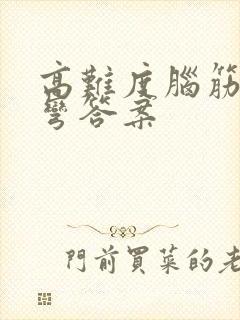 高難度腦筋
彎答案
門前買菜的老